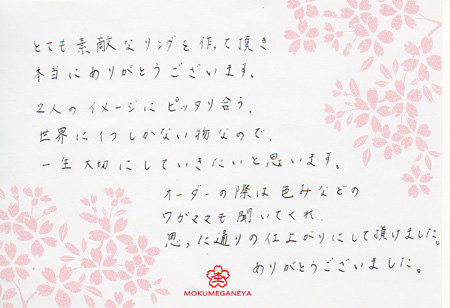 とても素敵なリングを作って頂き
本当にありがとうございます。
2人のイメージにピッタリ合う、
世界に1つしかない物なので、
一生大切にしていきたいと思います。
オーダーの際は色みなどの
ワガママも聞いてくれ、
思った通りの仕上がりにして頂けました。
ありがとうございました。
MOKUMEGANEYA